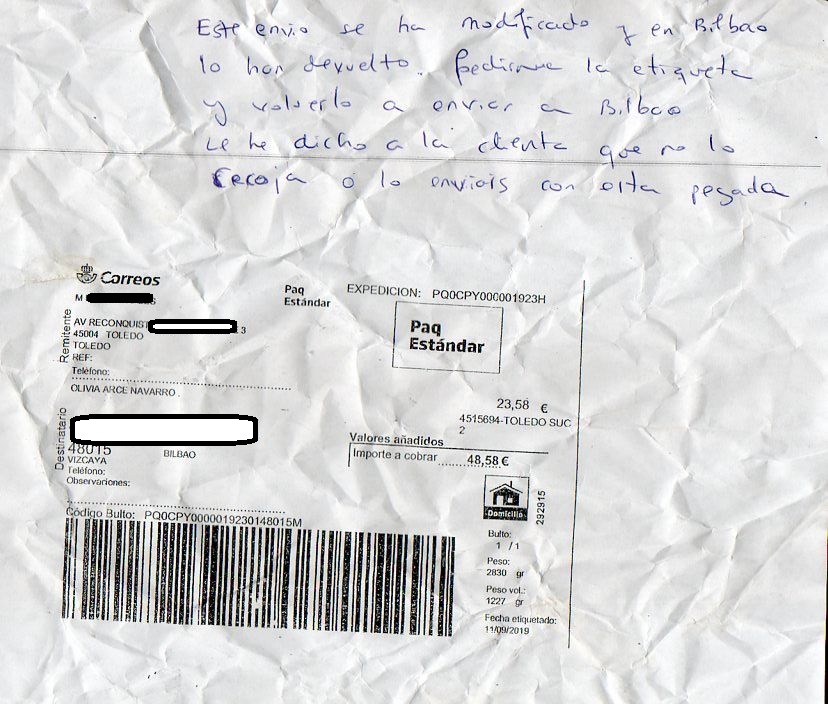 Este envio se ha modificado y en Bilbao
lo han devuelto. Pedirme la etiqueta
y volverlo a enviar a Bilbao
Le he dicho a la clienta que no lo
recoja ó lo enviais con esta pegada.
Correos
Paq
Estándar
EXPEDICION: PQ0CPY000001923H
Paq
Estándar
Remitente
M
AV RECONQUIST 3
45004 TOLEDO
TOLEDO
REF:
Teléfono:
Destinatario
OLIVIA ARCE NAVARRO .
48015 BILBAO
VIZCAYA
Teléfono:
Observaciones:
23,58 €
4515694-TOLEDO SUC
2
Valores añadidos
Importe a cobrar 48,58 €
Domicilio
292915
Código Bulto: PQ0CPY0000019230148015M
Bulto:
1 / 1
Peso:
2830 gr
Peso vol.:
1227 gr
Fecha etiquetado:
11/09/2019